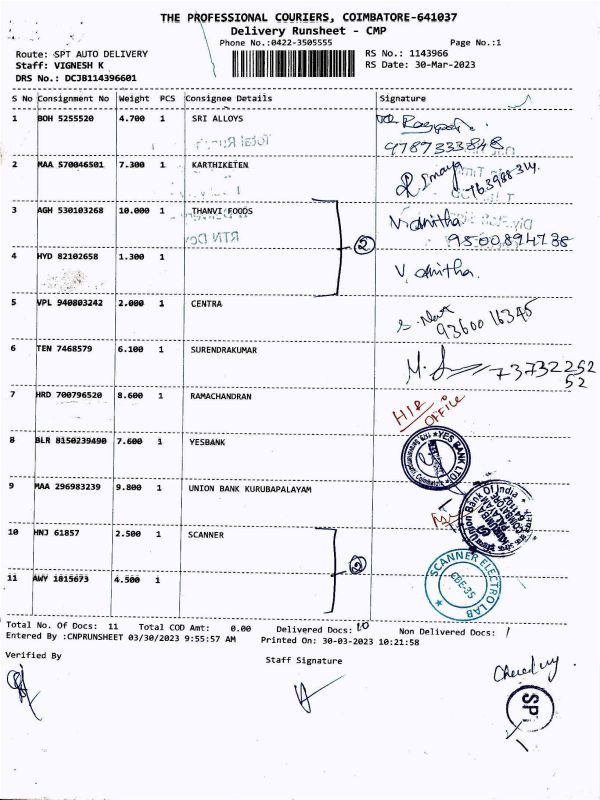 THE PROFESSIONAL COURIERS, COIMBATORE-641037
Delivery Runsheet - CMP
Phone No.:0422-3505555 Page No.:1
Route: SPT AUTO DELIVERY RS No.: 1143966
Staff: VIGNESH K RS Date: 30-Mar-2023
DRS No.: DCJB114396601
S No Consignment No Weight PCS Consignee Details Signature
1 BOH 5255520 4.700 1 SRI ALLOYS
9787333848
2 MAA 570046501 7.300 1 KARTHIKETEN
3 AGH 530103268 10.000 1 THANVI FOODS V. anitha
9500894738
②
4 HYD 82102658 1.300 1 V. anitha.
5 VPL 940803242 2.000 1 CENTRA
9360016345
6 TEN 7468579 6.100 1 SURENDRAKUMAR
73732252
52
7 HRD 700796520 8.600 1 RAMACHANDRAN H12
OFFICE
8 BLR 8150239490 7.600 1 YESBANK YES BANK LTD
9 MAA 296983239 9.800 1 UNION BANK KURUBAPALAYAM Union Bank Of India
10 HNJ 61857 2.500 1 SCANNER
② SCANNER ELECTRO LAB
CBE-35
11 AWY 1815673 4.500 1
Total No. Of Docs: 11 Total COD Amt: 0.00 Delivered Docs: 10 Non Delivered Docs: 1
Entered By :CNPRUNSHEET 03/30/2023 9:55:57 AM Printed On: 30-03-2023 10:21:58
Verified By Staff Signature
SP